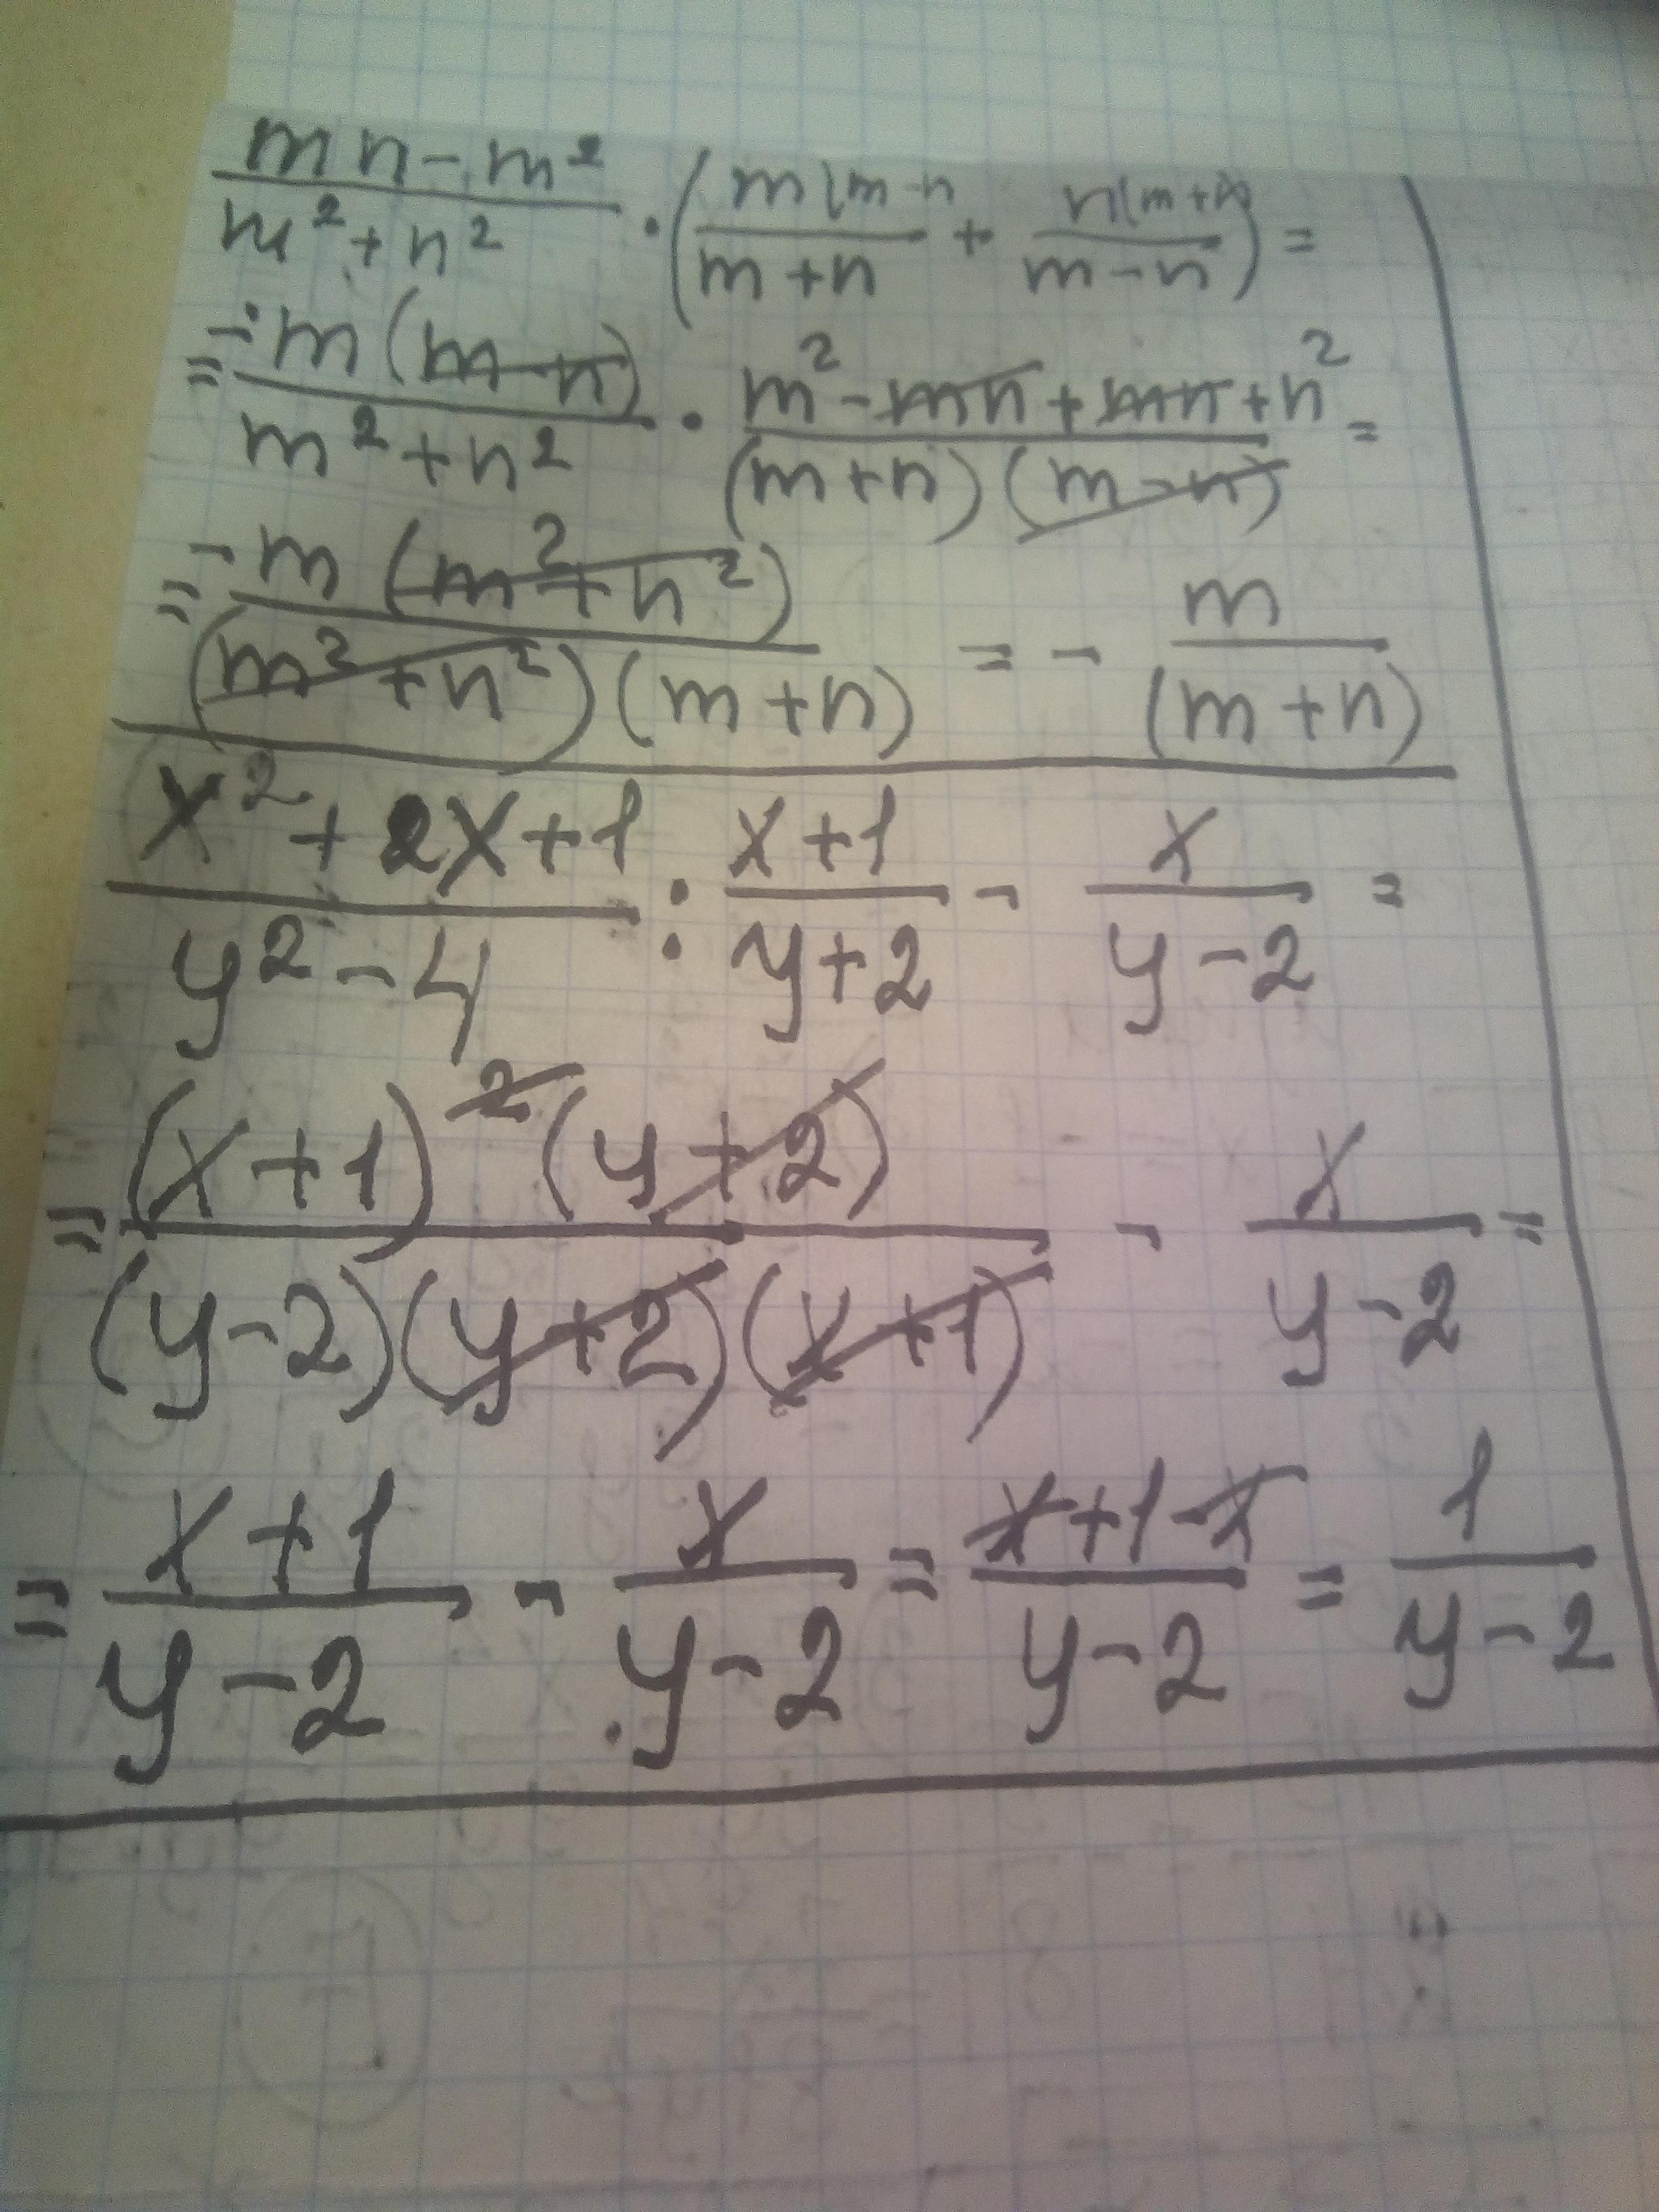 (mn - m²)/(m² + n²) · ( m(m-n/(m+n) + n(m+n)/(m-n) ) =
= -m(m-n)/(m²+n²) · (m² - mn + mn + n²)/((m+n)(m-n)) =
= -m(m²+n²)/((m²+n²)(m+n)) = - m/(m+n)
(x² + 2x + 1)/(y² - 4) : (x+1)/(y+2) - x/(y-2) =
= (x+1)²(y+2)/((y-2)(y+2)(x+1)) - x/(y-2) =
= (x+1)/(y-2) - x/(y-2) = (x+1-x)/(y-2) = 1/(y-2)